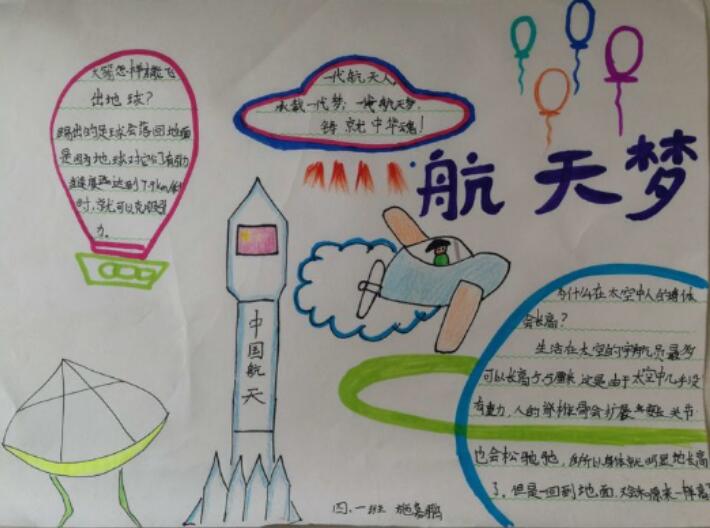 火箭怎样才能飞
出地球?
踢出的足球会落回地面
是因为地球对它有引力
当速度达到7.9km/s
时,就可以克服引
力。
一代航天人,
承载一代梦;一代航天梦,
铸就中华魂!
航天梦
中国航天
为什么在太空中人的身体
会长高?
生活在太空的宇航员最多
可以长高5.5厘米,这是由于太空中几乎没
有重力,人的脊柱骨会扩展,关节
也会松弛,所以身体就明显地长高
了,但是一回到地面,又会和原来一样高
四、一班 施嘉鹏